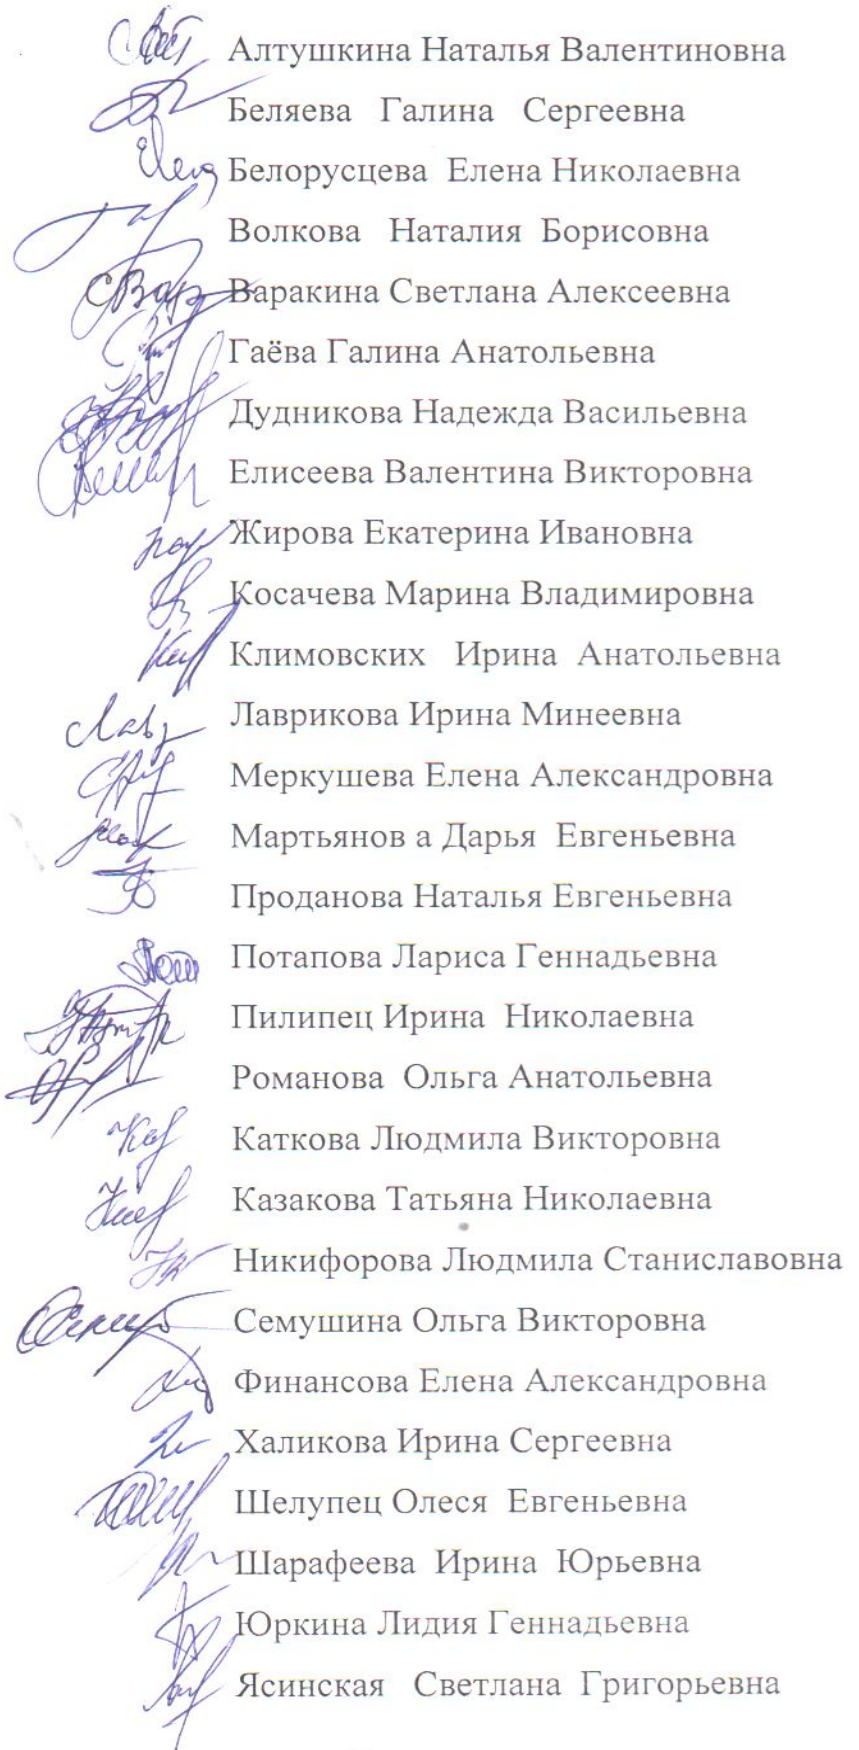 Алтушкина Наталья Валентиновна
Беляева Галина Сергеевна
Белорусцева Елена Николаевна
Волкова Наталия Борисовна
Варакина Светлана Алексеевна
Гаёва Галина Анатольевна
Дудникова Надежда Васильевна
Елисеева Валентина Викторовна
Жирова Екатерина Ивановна
Косачева Марина Владимировна
Климовских Ирина Анатольевна
Лаврикова Ирина Минеевна
Меркушева Елена Александровна
Мартьянов а Дарья Евгеньевна
Проданова Наталья Евгеньевна
Потапова Лариса Геннадьевна
Пилипец Ирина Николаевна
Романова Ольга Анатольевна
Каткова Людмила Викторовна
Казакова Татьяна Николаевна
Никифорова Людмила Станиславовна
Семушина Ольга Викторовна
Финансова Елена Александровна
Халикова Ирина Сергеевна
Шелупец Олеся Евгеньевна
Шарафеева Ирина Юрьевна
Юркина Лидия Геннадьевна
Ясинская Светлана Григорьевна